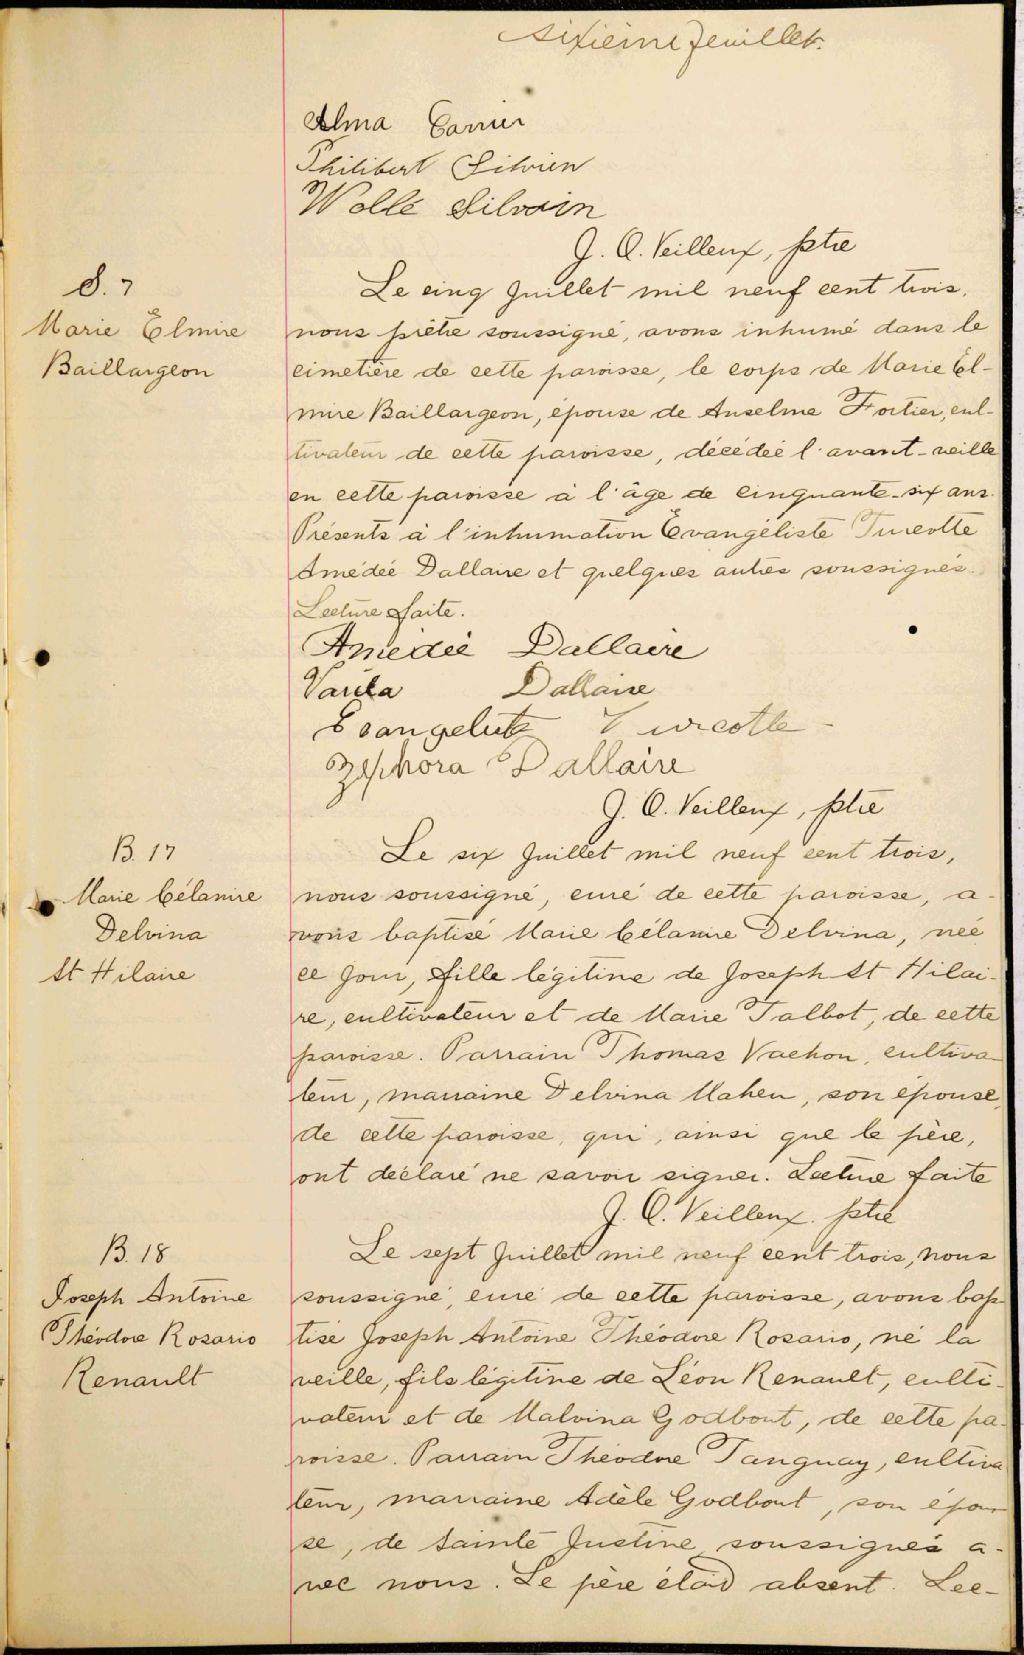 sixième feuillet.
Alma Carrier
Philibert Silvien
Wollé Silvain
J. O. Veilleux, ptre
S. 7
Marie Elmire
Baillargeon
Le cinq Juillet mil neuf cent trois,
nous prêtre soussigné, avons inhumé dans le
cimetière de cette paroisse, le corps de Marie El-
mire Baillargeon, épouse de Anselme Fortier, cul-
tivateur de cette paroisse, décédée l'avant-veille
en cette paroisse à l'âge de cinquante-six ans.
Présents à l'inhumation Evangéliste Turcotte
Amédée Dallaire et quelques autres soussignés.
Lecture faite.
Amédée Dallaire
Dallaire
Evangeliste Turcotte
Zephora Dallaire
J. O. Veilleux, ptre
B. 17
Marie Célanire
Delvina
St Hilaire
Le six Juillet mil neuf cent trois,
nous soussigné, curé de cette paroisse, a-
vons baptisé Marie Célanire Delvina, née
ce jour, fille légitime de Joseph St Hilai-
re, cultivateur et de Marie Talbot, de cette
paroisse. Parrain Thomas Vachon, cultiva-
teur, marraine Delvina Maheu, son épouse,
de cette paroisse, qui, ainsi que le père,
ont déclaré ne savoir signer. Lecture faite
J. O. Veilleux. ptre
B. 18
Joseph Antoine
Théodore Rosario
Renault
Le sept Juillet mil neuf cent trois, nous
soussigné, curé de cette paroisse, avons bap-
tisé Joseph Antoine Théodore Rosario, né la
veille, fils légitime de Léon Renault, culti-
vateur et de Malvina Godbout, de cette pa-
roisse. Parrain Théodore Tanguay, cultiva
teur, marraine Adèle Godbout, son épou
se, de Sainte Justine soussignés a-
vec nous. Le père était absent. Lec-